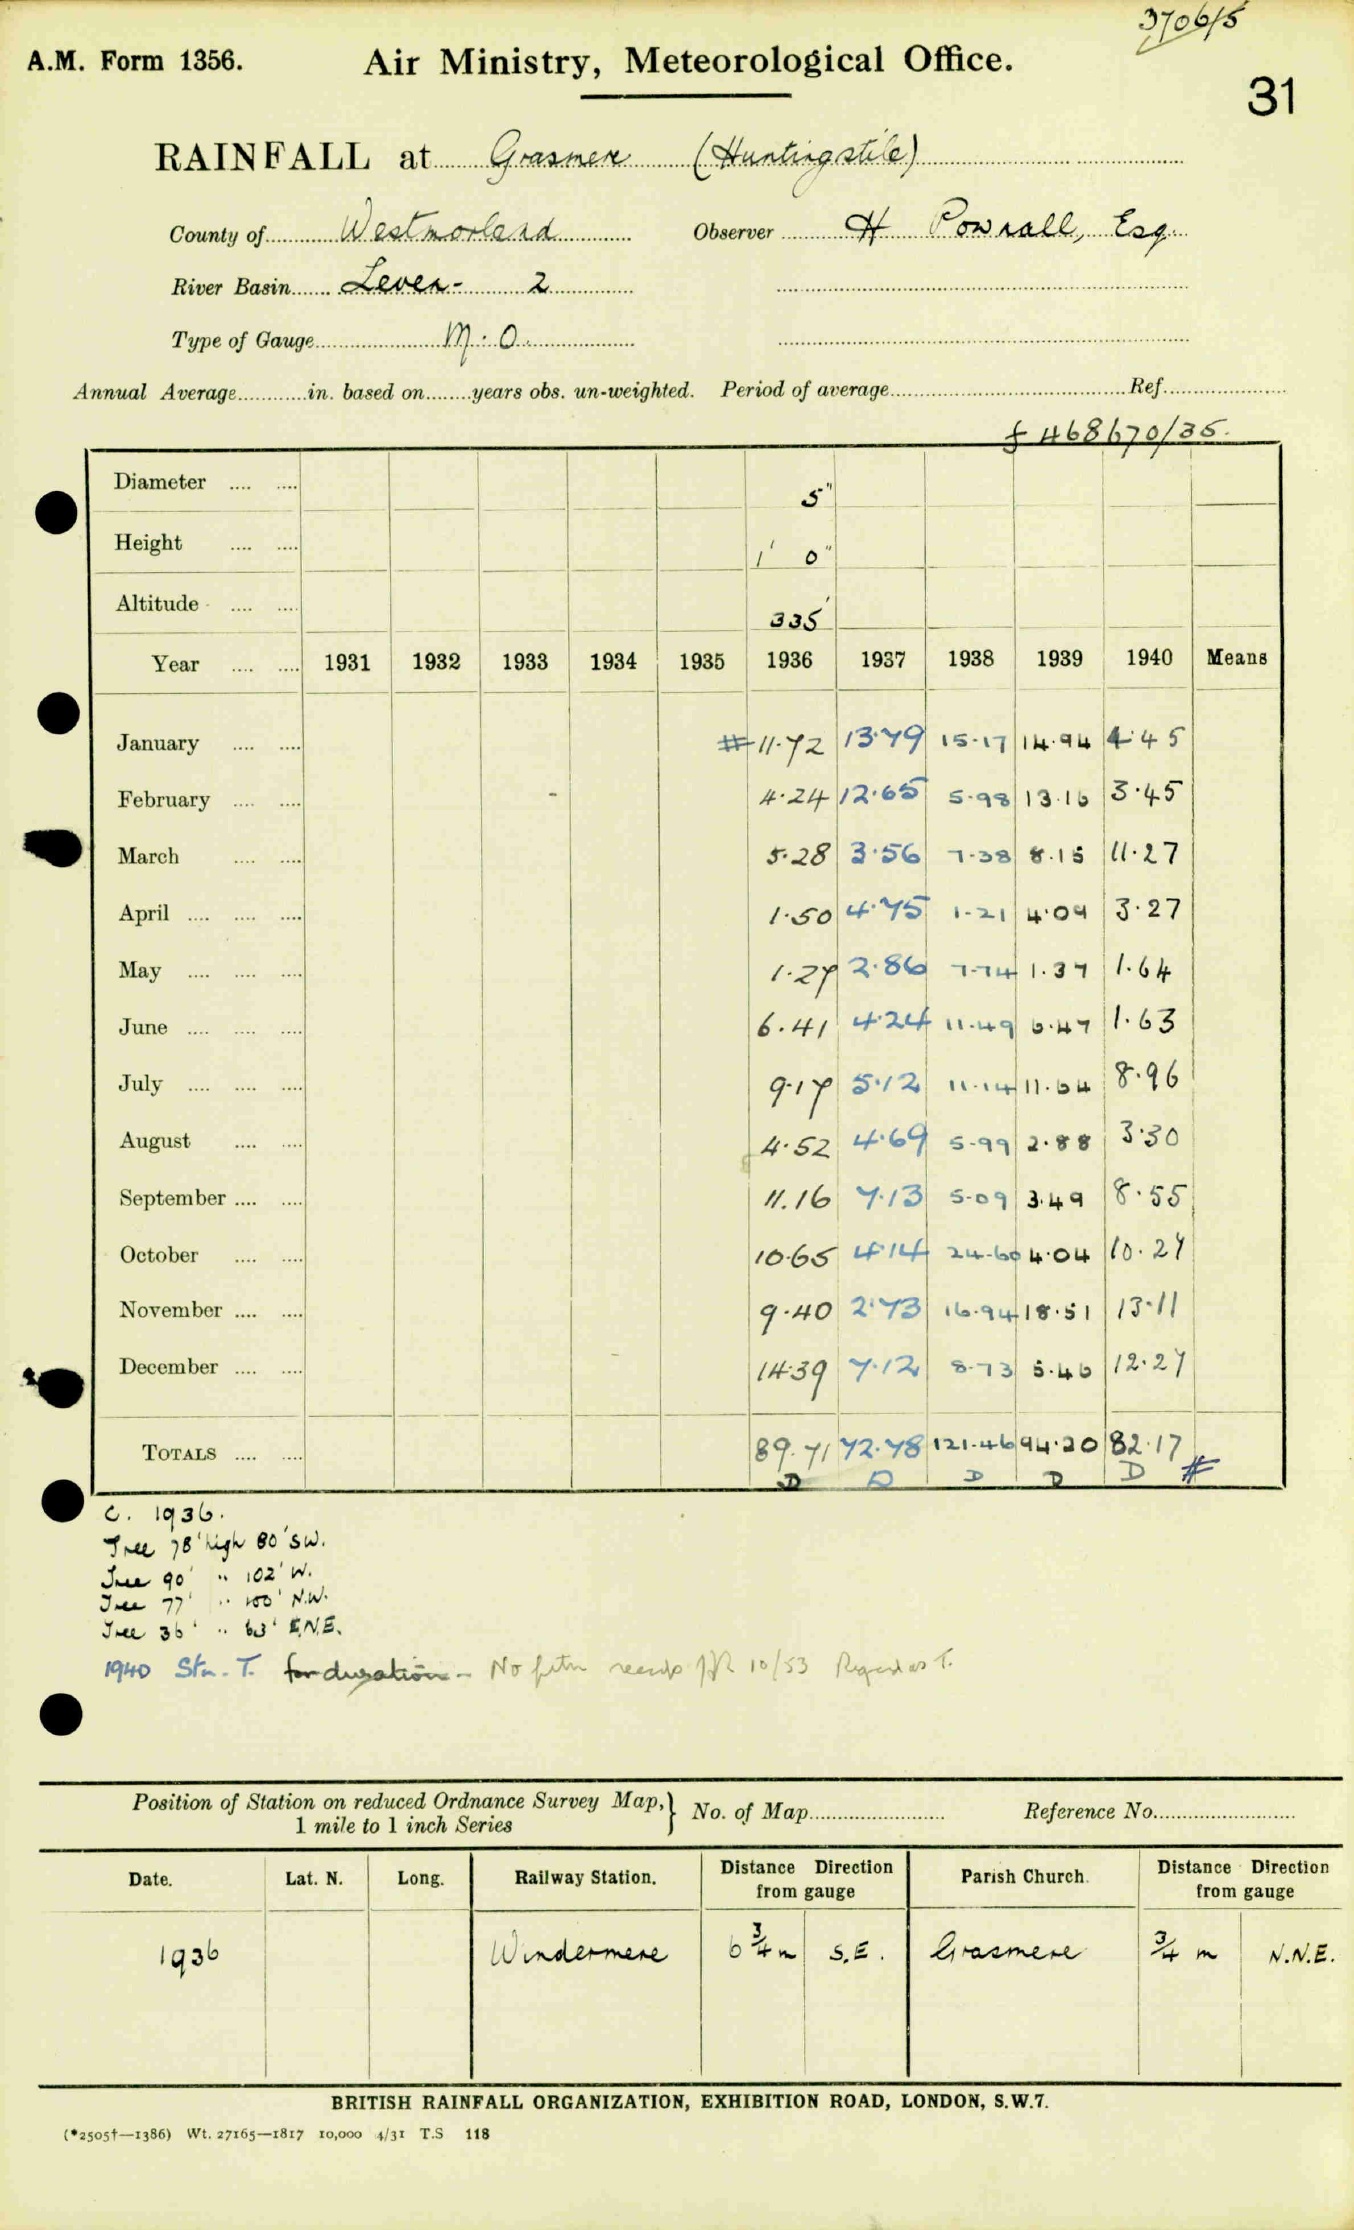 3706/5
A.M. Form 1356. Air Ministry, Meteorological Office.
31
RAINFALL at Grasmere (Huntingstile)
County of Westmorland Observer H Pownall, Esq.
River Basin Leven - 2
Type of Gauge M.O.
Annual Average in. based on years obs. un-weighted. Period of average Ref.
468670/35.
Diameter 5"
Height 1' 0"
Altitude 335'
Year 1931 1932 1933 1934 1935 1936 1937 1938 1939 1940 Means
January # 11.72 13.79 15.17 14.94 4.45
February 4.24 12.65 5.98 13.16 3.45
March 5.28 3.56 7.38 8.15 11.27
April 1.50 4.75 1.21 4.09 3.27
May 1.27 2.86 7.74 1.37 1.64
June 6.41 4.24 11.49 6.47 1.63
July 9.17 5.12 11.14 11.64 8.96
August 4.52 4.69 5.99 2.88 3.30
September 11.16 7.13 5.09 3.49 8.55
October 10.65 4.14 24.60 4.04 10.27
November 9.40 2.73 16.94 18.51 13.11
December 14.39 7.12 8.73 5.46 12.27
TOTALS 89.71 72.78 121.46 94.20 82.17
D D D D D #
C. 1936.
Tree 78' high 80' S.W.
Tree 90' " 102' W.
Tree 77' " 100' N.W.
Tree 36' " 63' E.N.E.
1940 Stn. T. for duration - No records 10/53 Regard as T.
Position of Station on reduced Ordnance Survey Map,} No. of Map Reference No.
1 mile to 1 inch Series
Date. Lat. N. Long. Railway Station. Distance Direction from gauge Parish Church. Distance Direction from gauge
1936 Windermere 6 3/4 m S.E. Grasmere 3/4 m N.N.E.
BRITISH RAINFALL ORGANIZATION, EXHIBITION ROAD, LONDON, S.W.7.
(*2505†—1386) Wt. 27165—1817 10,000 4/31 T.S 118